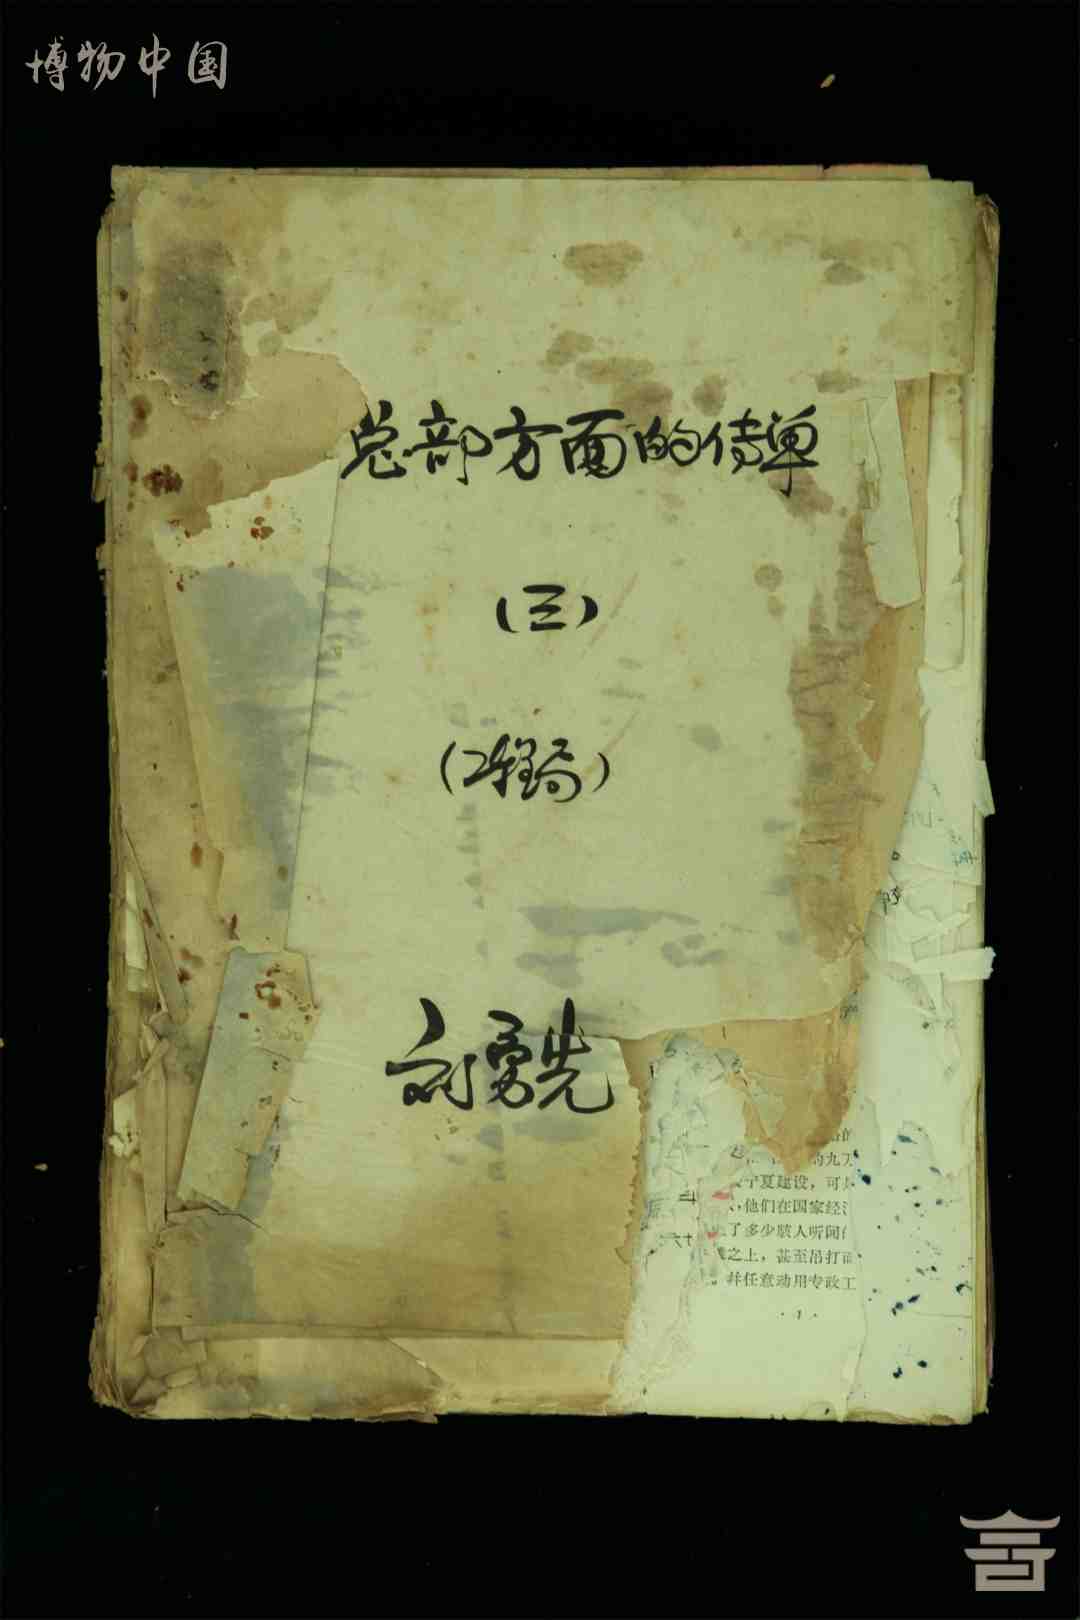 博物中国
总部方面的传单
(三)
(工程局)
刘勇先
的九
宁夏建设，可
，他们在国家经
了多少骇人听闻
之上，甚至吊打
。并任意动用专政工
·1·